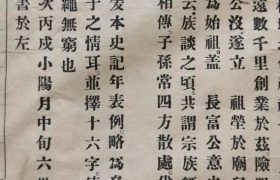 遠數千里創業于茲險
公沒遂立　祖塋於廟
為始祖蓋　長富公意
云族談之頃共謂宗族
相傳子孫常四方散處
发本史記年表例略為
于之情耳並擇十六字
繩無窮也
次丙戌小陽月中旬六
書於左